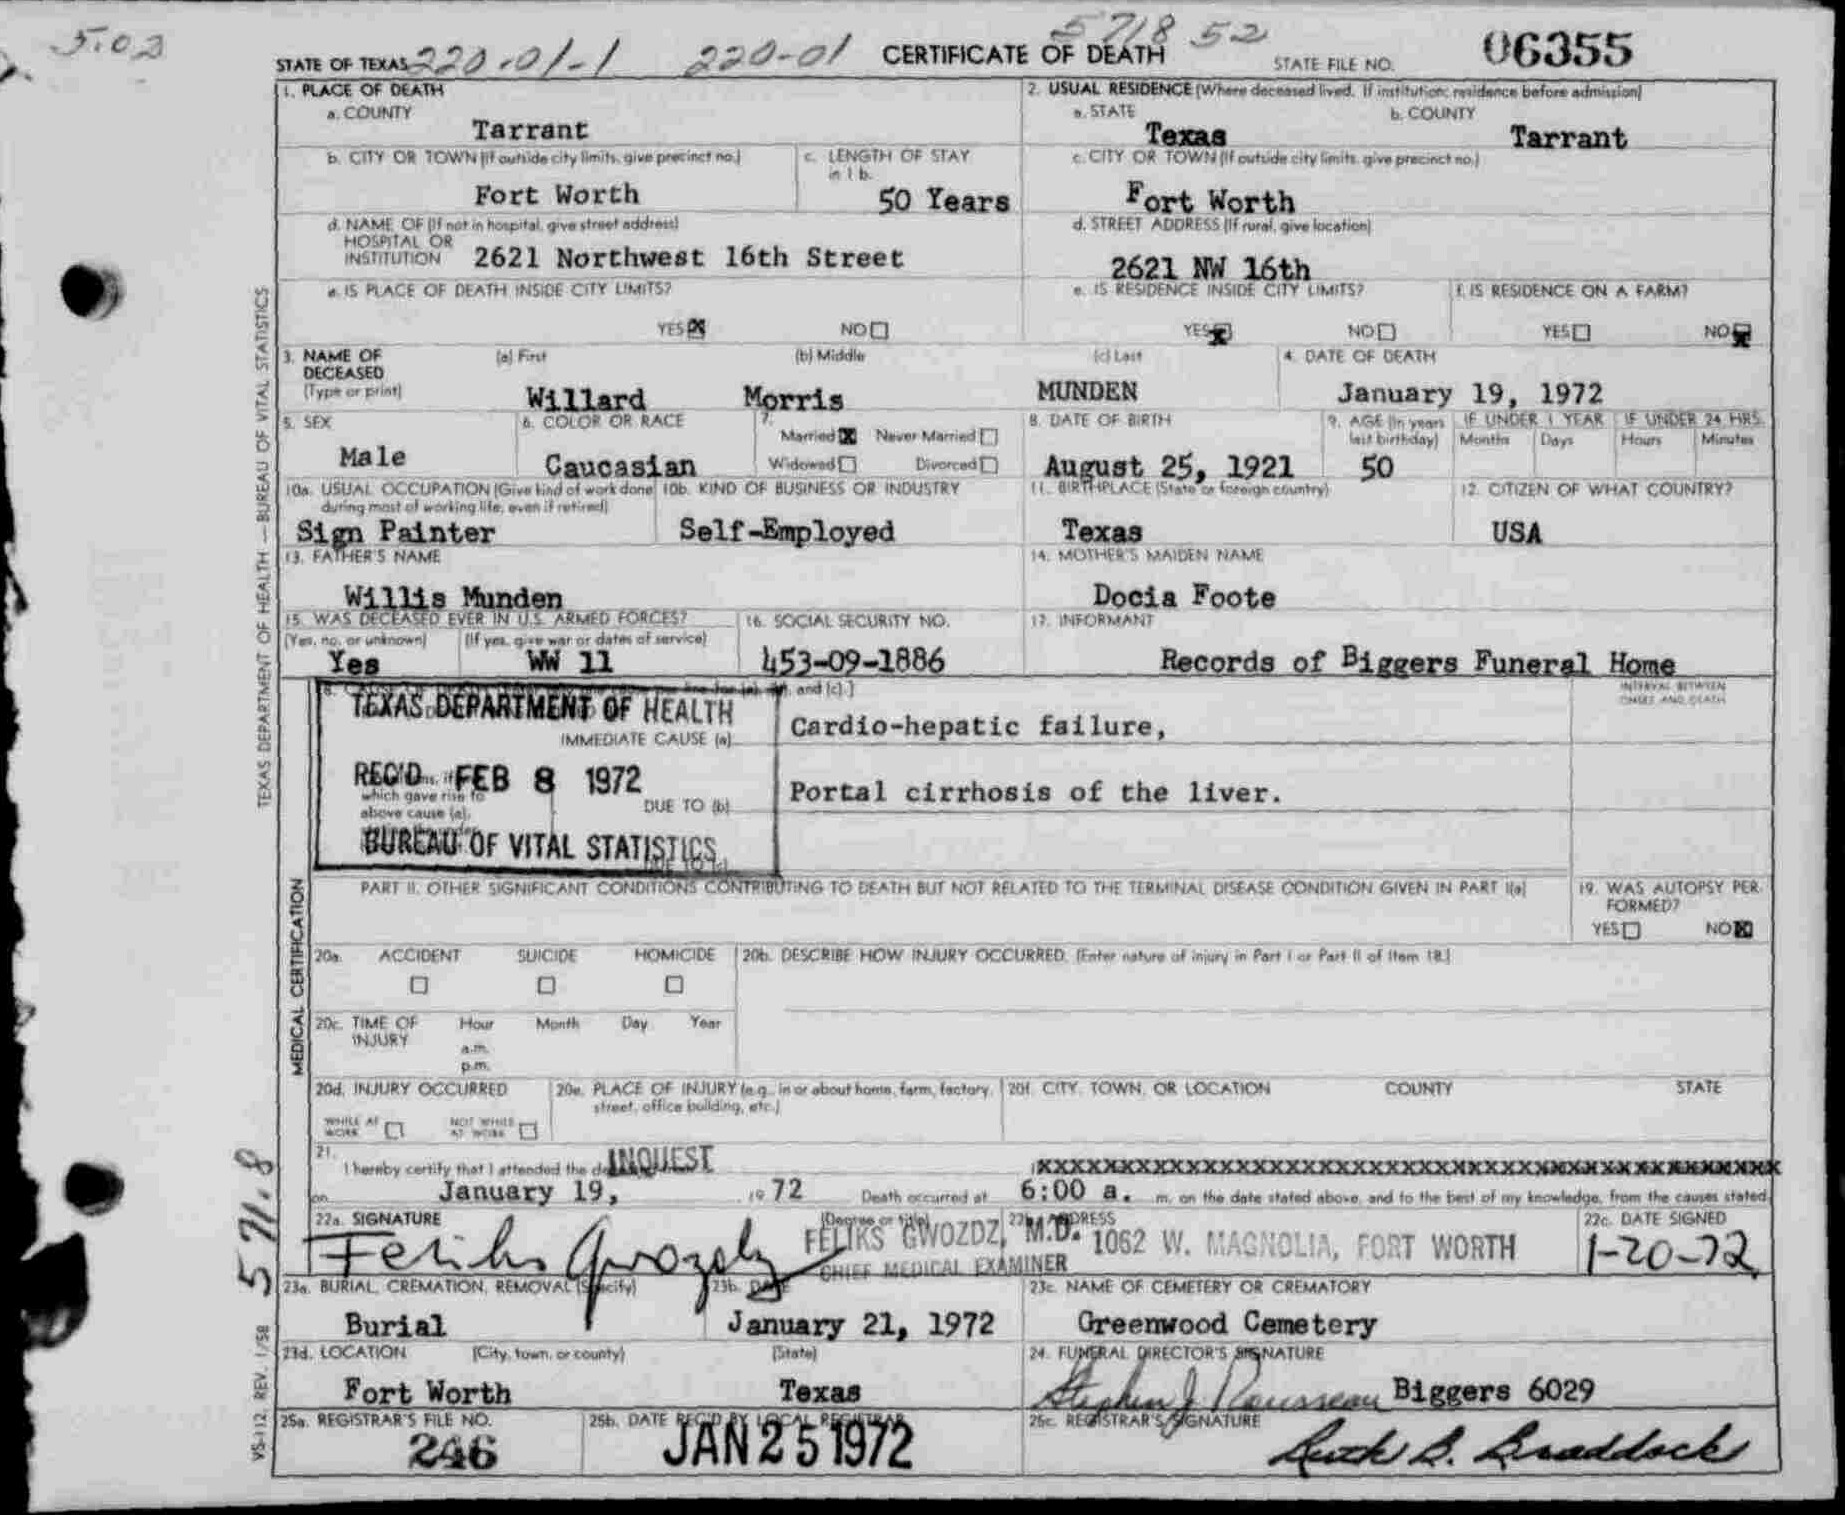 5.02
5718 52
STATE OF TEXAS 220-01-1 220-01 CERTIFICATE OF DEATH STATE FILE NO. 06355
1. PLACE OF DEATH
a. COUNTY
Tarrant
2. USUAL RESIDENCE (Where deceased lived. If institution: residence before admission)
a. STATE b. COUNTY
Texas Tarrant
b. CITY OR TOWN (If outside city limits, give precinct no.)
Fort Worth
c. LENGTH OF STAY
in 1 b.
50 Years
c. CITY OR TOWN (If outside city limits, give precinct no.)
Fort Worth
d. NAME OF (If not in hospital, give street address)
HOSPITAL OR
INSTITUTION 2621 Northwest 16th Street
d. STREET ADDRESS (If rural, give location)
2621 NW 16th
e. IS PLACE OF DEATH INSIDE CITY LIMITS?
YES NO
e. IS RESIDENCE INSIDE CITY LIMITS?
YES NO
f. IS RESIDENCE ON A FARM?
YES NO
3. NAME OF
DECEASED
(Type or print)
(a) First (b) Middle (c) Last
Willard Morris MUNDEN
4. DATE OF DEATH
January 19, 1972
5. SEX
Male
6. COLOR OR RACE
Caucasian
7.
Married Never Married
Widowed Divorced
8. DATE OF BIRTH
August 25, 1921
9. AGE (In years
last birthday)
50
IF UNDER 1 YEAR
Months Days
IF UNDER 24 HRS.
Hours Minutes
10a. USUAL OCCUPATION (Give kind of work done
during most of working life, even if retired)
Sign Painter
10b. KIND OF BUSINESS OR INDUSTRY
Self-Employed
11. BIRTHPLACE (State or foreign country)
Texas
12. CITIZEN OF WHAT COUNTRY?
USA
13. FATHER'S NAME
Willis Munden
14. MOTHER'S MAIDEN NAME
Docia Foote
15. WAS DECEASED EVER IN U.S. ARMED FORCES?
(Yes, no, or unknown) (If yes, give war or dates of service)
Yes WW 11
16. SOCIAL SECURITY NO.
453-09-1886
17. INFORMANT
Records of Biggers Funeral Home
and (c).]
INTERVAL BETWEEN
ONSET AND DEATH
TEXAS DEPARTMENT OF HEALTH
IMMEDIATE CAUSE (a)
Cardio-hepatic failure,
REC'D FEB 8 1972
which gave rise to
above cause (a),
DUE TO (b)
Portal cirrhosis of the liver.
BUREAU OF VITAL STATISTICS
DUE TO (c)
PART II. OTHER SIGNIFICANT CONDITIONS CONTRIBUTING TO DEATH BUT NOT RELATED TO THE TERMINAL DISEASE CONDITION GIVEN IN PART I(a)
19. WAS AUTOPSY PER-
FORMED?
YES NO
20a. ACCIDENT SUICIDE HOMICIDE
20b. DESCRIBE HOW INJURY OCCURRED. (Enter nature of injury in Part I or Part II of Item 18.)
20c. TIME OF
INJURY
Hour Month Day Year
a.m.
p.m.
20d. INJURY OCCURRED
WHILE AT
WORK
NOT WHILE
AT WORK
20e. PLACE OF INJURY (e.g., in or about home, farm, factory,
street, office building, etc.)
20f. CITY, TOWN, OR LOCATION COUNTY STATE
21.
I hereby certify that I attended the INQUEST XXXXXXXXXXXXXXXXXXXXXXXXXXXXXXXXXXXXXXXXXXXXXX
on January 19, 19 72 Death occurred at 6:00 a. m. on the date stated above, and to the best of my knowledge, from the causes stated.
22a. SIGNATURE
Feliks Gwozdz
(Degree or title)
FELIKS GWOZDZ, M.D.
CHIEF MEDICAL EXAMINER
22b. ADDRESS
1062 W. MAGNOLIA, FORT WORTH
22c. DATE SIGNED
1-20-72
23a. BURIAL, CREMATION, REMOVAL (Specify)
Burial
23b. DATE
January 21, 1972
23c. NAME OF CEMETERY OR CREMATORY
Greenwood Cemetery
23d. LOCATION (City, town, or county) (State)
Fort Worth Texas
24. FUNERAL DIRECTOR'S SIGNATURE
Stephen J. Rousseau Biggers 6029
25a. REGISTRAR'S FILE NO.
246
25b. DATE REC'D BY LOCAL REGISTRAR
JAN 25 1972
25c. REGISTRAR'S SIGNATURE
Ruth B. Braddock
TEXAS DEPARTMENT OF HEALTH — BUREAU OF VITAL STATISTICS
MEDICAL CERTIFICATION
571.8
VS-112, REV. 1/58